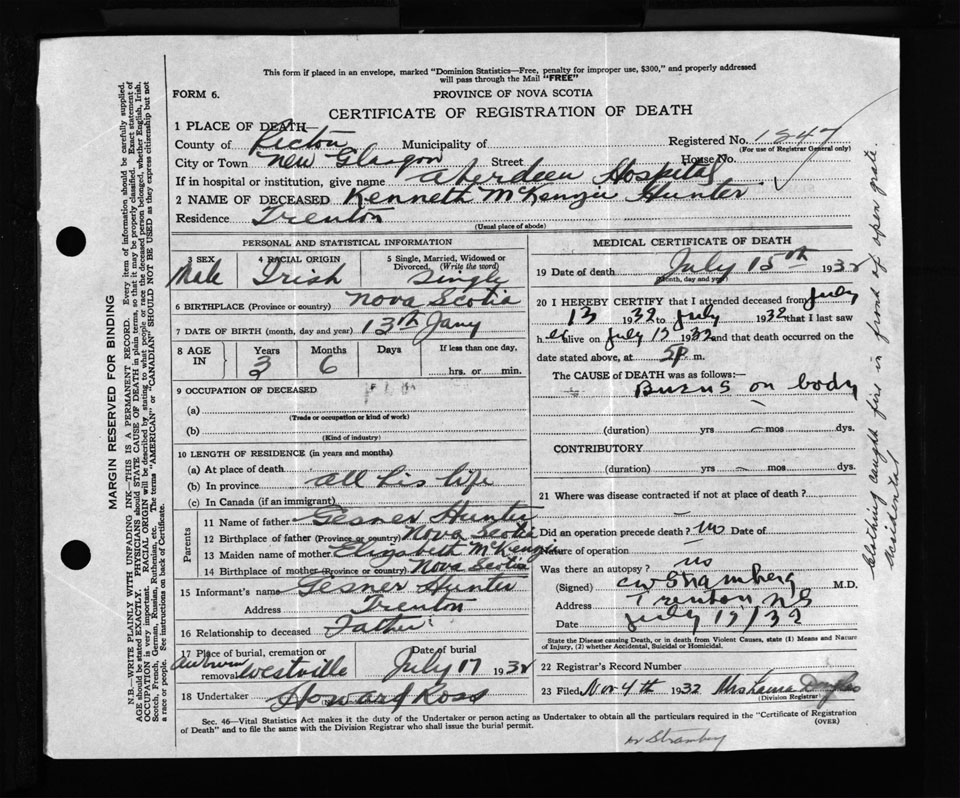 This form if placed in an envelope, marked "Dominion Statistics—Free, penalty for improper use, $300," and properly addressed
will pass through the Mail "FREE"
FORM 6.
PROVINCE OF NOVA SCOTIA
CERTIFICATE OF REGISTRATION OF DEATH
1 PLACE OF DEATH—
County of Pictou Municipality of Registered No. 1847
(For use of Registrar General only)
City or Town New Glasgow Street House No.
If in hospital or institution, give name Aberdeen Hospital
2 NAME OF DECEASED Kenneth McKenzie Hunter
Residence Trenton
(Usual place of abode)
PERSONAL AND STATISTICAL INFORMATION
3 SEX Male
4 RACIAL ORIGIN Irish
5 Single, Married, Widowed or Divorced, (Write the word) Single
6 BIRTHPLACE (Province or country) Nova Scotia
7 DATE OF BIRTH (month, day and year) 13th Jany
8 AGE IN Years 3 Months 6 Days If less than one day, hrs. or min.
9 OCCUPATION OF DECEASED
(a)
(Trade or occupation or kind of work)
(b)
(Kind of industry)
10 LENGTH OF RESIDENCE (in years and months)
(a) At place of death
(b) In province all his life
(c) In Canada (if an immigrant)
Parents
11 Name of father Gesner Hunter
12 Birthplace of father (Province or country) Nova Scotia
13 Maiden name of mother Elizabeth McKenzie
14 Birthplace of mother (Province or country) Nova Scotia
15 Informant's name Gesner Hunter
Address Trenton
16 Relationship to deceased Father
17 Place of burial, cremation or removal Auburn Westville
Date of burial July 17 1932
18 Undertaker Howard Ross
MEDICAL CERTIFICATE OF DEATH
19 Date of death July 15th 1932
(Month, day and year)
20 I HEREBY CERTIFY that I attended deceased from July
13 1932 to July 1932 that I last saw
h alive on July 1932 and that death occurred on the
date stated above, at 5P m.
The CAUSE OF DEATH was as follows:—
Burns on body
(duration) yrs mos dys.
CONTRIBUTORY
(duration) yrs mos dys.
21 Where was disease contracted if not at place of death?
Did an operation precede death? no Date of
Nature of operation
Was there an autopsy? no
(Signed) CW Stramberg M.D.
Address Trenton NS
Date July /32
State the Disease causing Death, or in death from Violent Causes, state (1) Means and Nature
of Injury, (2) whether Accidental, Suicidal or Homicidal.
22 Registrar's Record Number
23 Filed Nov 4th 1932 Douglas
(Division Registrar)
Sec. 46—Vital Statistics Act makes it the duty of the Undertaker or person acting as Undertaker to obtain all the particulars required in the "Certificate of Registration
of Death" and to file the same with the Division Registrar who shall issue the burial permit.
(OVER)
Dr Stramberg
Clothing caught fire in front of open grate.
Accidental
MARGIN RESERVED FOR BINDING
N.B.—WRITE PLAINLY WITH UNFADING INK—THIS IS A PERMANENT RECORD. Every item of information should be carefully supplied.
AGE should be stated EXACTLY. PHYSICIANS should STATE CAUSE OF DEATH in plain terms, so that it may be properly classified. Exact statement of
OCCUPATION is very important. RACIAL ORIGIN will be described by stating to what people or race the deceased person belonged, whether English, Irish,
Scotch, French, German, Russian, Ruthenian, etc. The terms "AMERICAN" or "CANADIAN" SHOULD NOT BE USED as they express citizenship but not
a race or people. See instructions on back of Certificate.